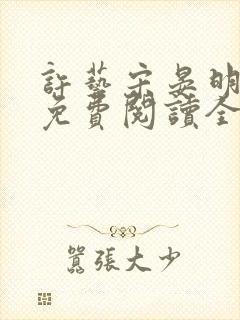 許藝宋晏明
免費閱讀全
囂張大少